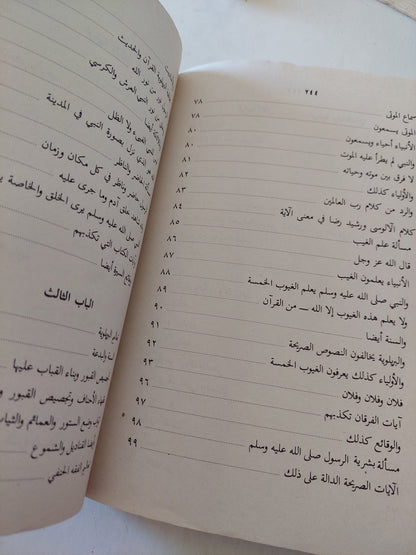 ٢٤٤
سماع الموتى ٧٨
الموتى يسمعون ٧٨
الأنبياء أحياء ويسمعون ٨٠
النبي لم يطرأ عليه الموت ٨٠
لا فرق بين موته وحياته ٨١
والأولياء كذلك ٨٢
والرد من كلام رب العالمين ٨٣
كلام الآلوسي ورشيد رضا في معنى الآية ٨٤
مسألة علم الغيب ٨٥
قال الله عز وجل ٨٦
الأنبياء يعلمون الغيب ٨٧
والنبي صلى الله عليه وسلم يعلم الغيوب الخمسة ٨٨
ولا يعلم هذه الغيوب إلا الله ــ من القرآن ٨٩
والسنة أيضا ٩٠
والبريلوية يخالفون النصوص الصريحة ٩١
والأولياء كذلك يعرفون الغيوب الخمسة ٩٢
فلان وفلان وفلان ٩٣
آيات الفرقان تكذبهم ٩٦
والوقائع كذلك ٩٧
مسألة بشرية الرسول صلى الله عليه وسلم ٩٨
الآيات الصريحة الدالة على ذلك ٩٩
القرآن والحديث
من نور الله
نور النبي العرش والكرسي
أيضا
الفيء ولا الظل
نزل بصورة النبي في المدينة
والناظر
حاضر وناظر في كل مكان وزمان
خلق آدم وما جرى عليه
صلى الله عليه وسلم يرى الخلق والخاصة
آيات الكتاب التي تكذبهم
السيرة أيضا
الباب الثالث
البريلوية
والبدعة
القبور وبناء القباب عليها
الأحناف وتجصيص القبور
بوضع الستور والعمائم والثياب
القناديل والشموع
الفقه الحنفي